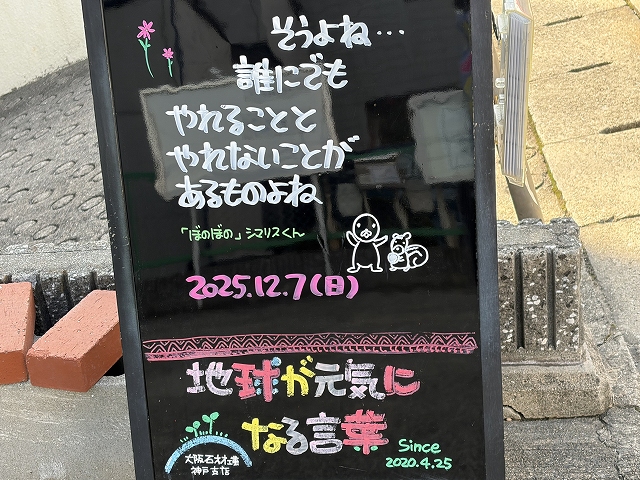 そうよね…
誰にでも
やれることと
やれないことが
あるものよね
「ぼのぼの」シマリスくん
2025.12.7(日)
地球が元気に
なる言葉
Since
2020.4.25
大阪石材工業
神戸支店